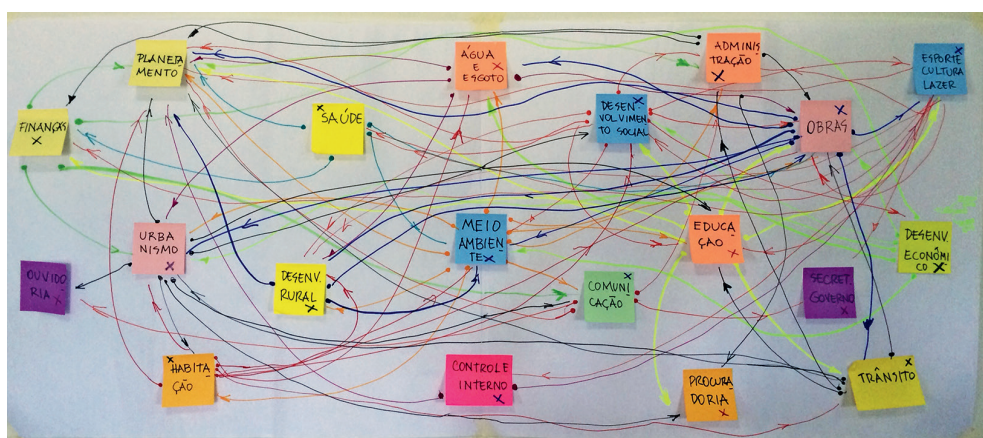 PLANEJA
MENTO
ÁGUA
E
ESGOTO
ADMINIS
TRAÇÃO
ESPORTE
CULTURA
LAZER
FINANÇAS
SAÚDE
DESEN-
VOLVIMEN
TO SOCIAL
OBRAS
URBA
NISMO
MEIO
AMBIEN-
TE
EDUCA
ÇÃO
DESENV.
ECONÔMI
CO
OUVIDO
RIA
DESENV.
RURAL
COMUNI
CAÇÃO
SECRET.
GOVERNO
HABITA
ÇÃO
CONTROLE
INTERNO
PROCURA
DORIA
TRÂNSITO